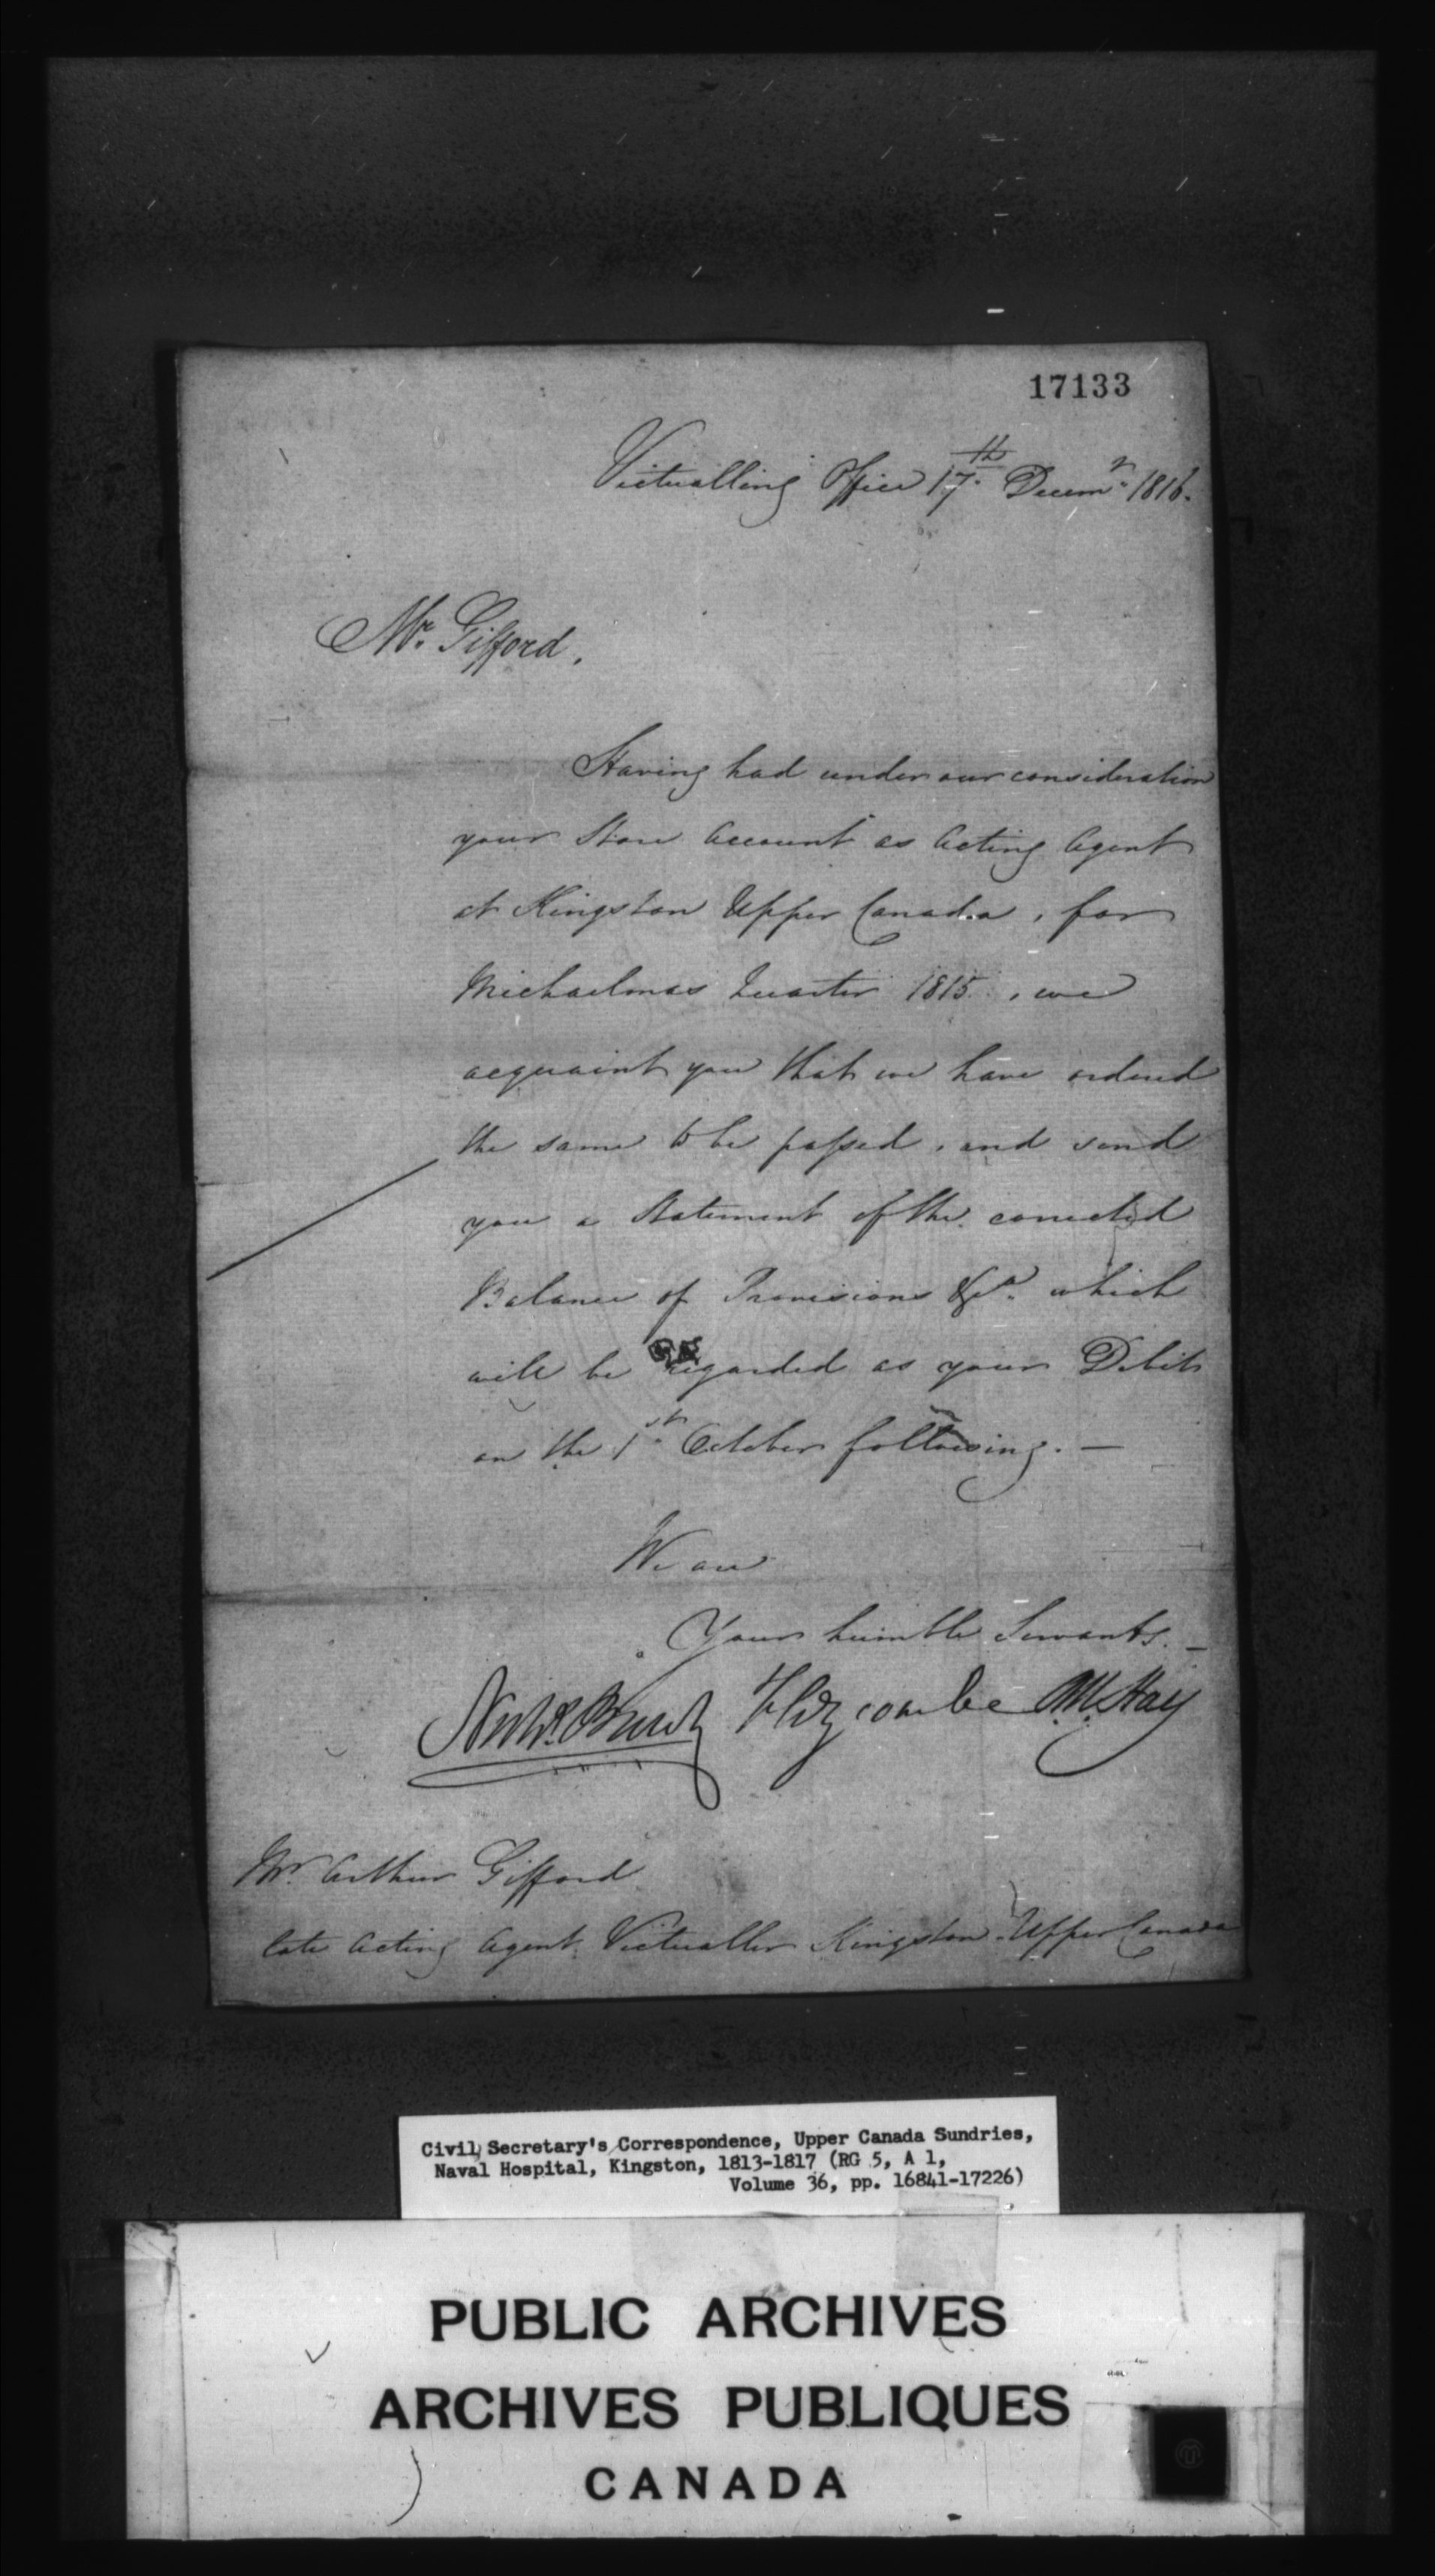 17133
Victualling Office 17th Decemr 1816.
Mr. Gifford,
Having had under our consideration
your Store Account as Acting Agent
at Kingston Upper Canada, for
Michaelmas Quarter 1815, we
acquaint you that we have ordered
the same to be passed, and send
you a Statement of the corrected
Balance of Provisions &ca. which
will be regarded as your Debit
on the 1st October following. —
We are
Your humble Servants. —
Searle
Mr. Arthur Gifford
late Acting Agent Victualler Kingston Upper Canada
Civil Secretary's Correspondence, Upper Canada Sundries,
Naval Hospital, Kingston, 1813-1817 (RG 5, A 1,
Volume 36, pp. 16841-17226)
PUBLIC ARCHIVES
ARCHIVES PUBLIQUES
CANADA